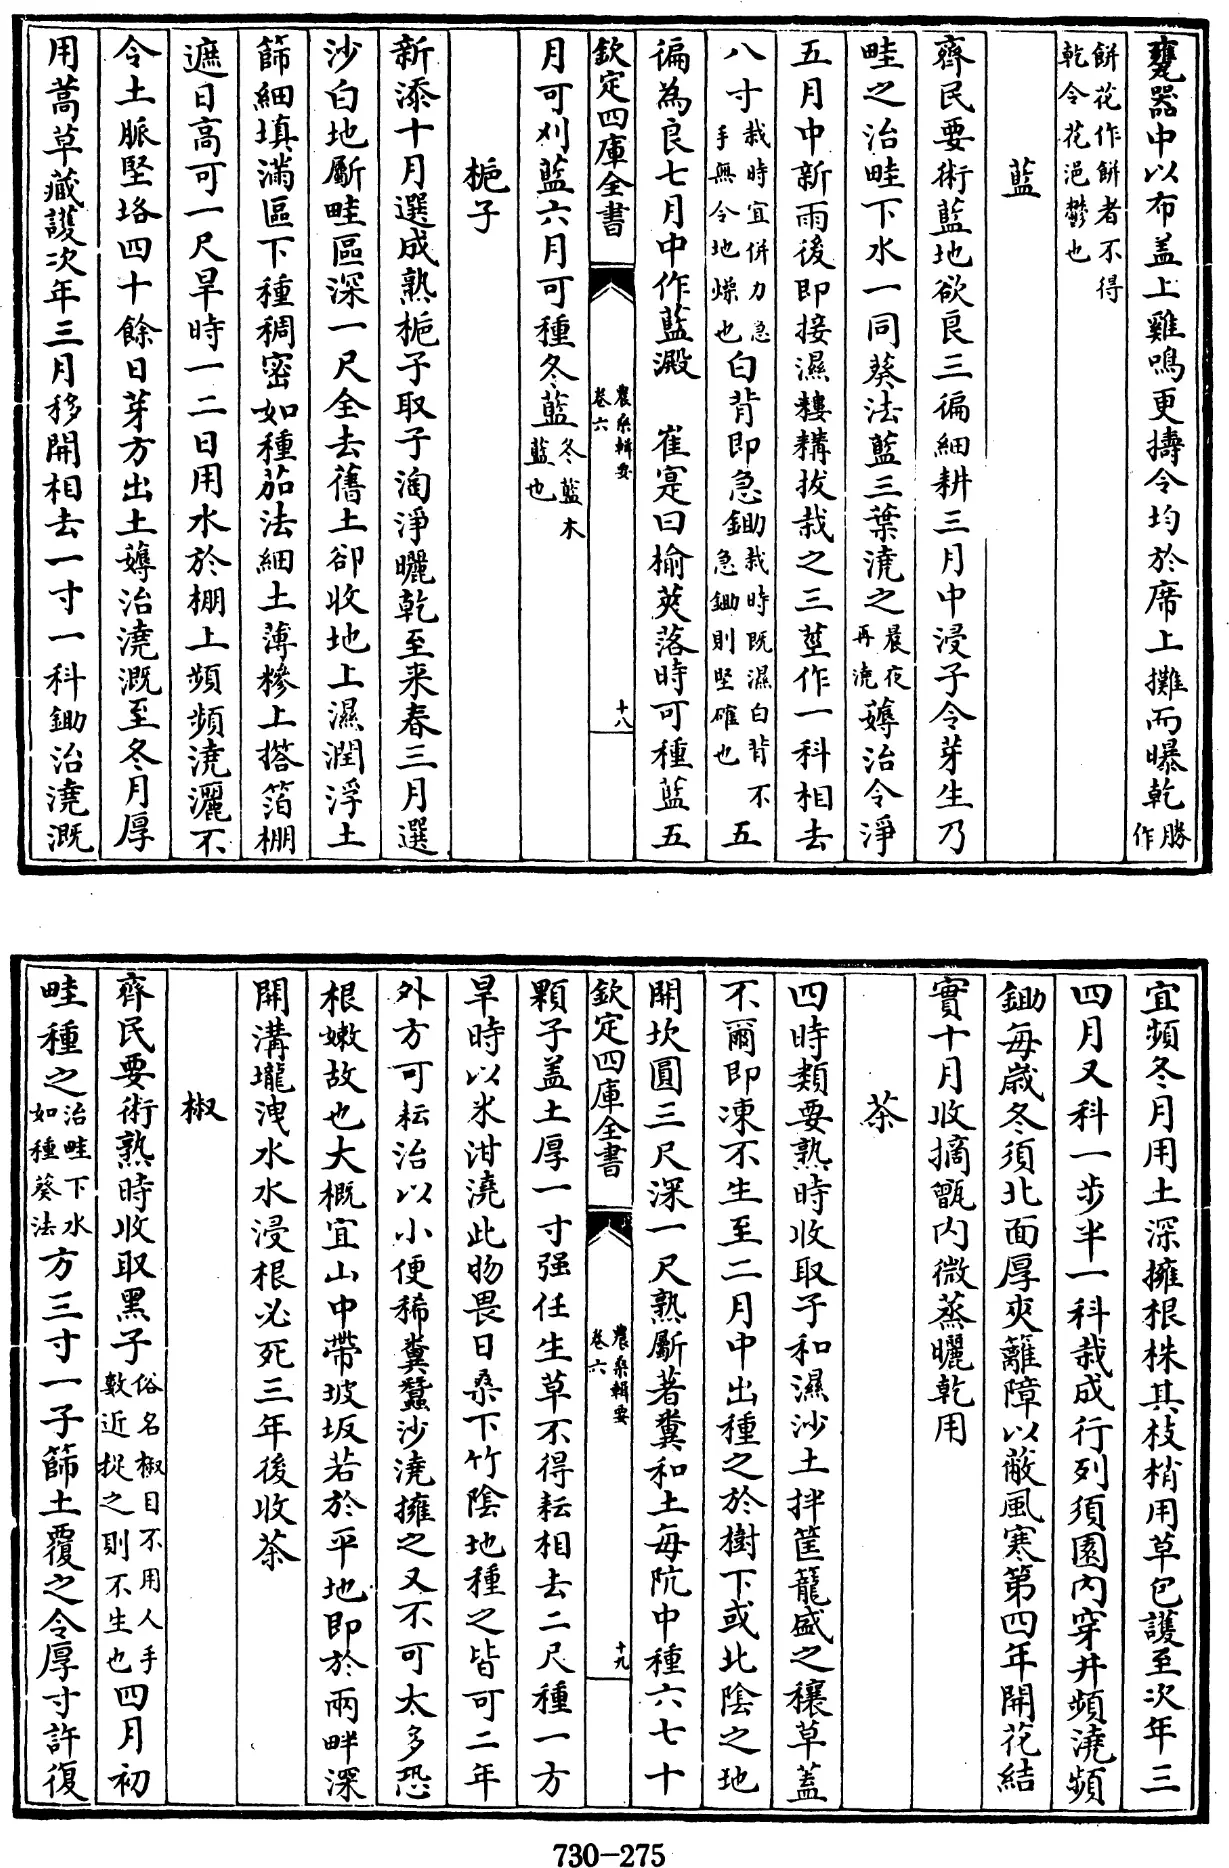 甕器中以布盖上雞鳴更擣令均於席上攤而曝乾勝作
餅花作餅者不得乾令花浥鬱也
藍
齊民要術藍地欲良三徧細耕三月中浸子令芽生乃
畦之治畦下水一同葵法藍三葉澆之晨夜再澆薅治令淨
五月中新雨後即接濕耬耩拔栽之三莖作一科相去
八寸栽時宜併力急手無令地燥也白背即急鋤栽時既濕白背不急鋤則堅確也五
徧為良七月中作藍澱　崔寔曰榆莢落時可種藍五
欽定四庫全書
農桑輯要
卷六
十八
月可刈藍六月可種冬藍冬藍木藍也
梔子
新添十月選成熟梔子取子淘淨曬乾至来春三月選
沙白地斸畦區深一尺全去舊土卻收地上濕潤浮土
篩細填滿區下種稠密如種茄法細土薄糝上搭箔棚
遮日高可一尺旱時一二日用水於棚上頻頻澆灑不
令土脈堅垎四十餘日芽方出土薅治澆溉至冬月厚
用蒿草藏護次年三月移開相去一寸一科鋤治澆溉
宜頻冬月用土深擁根株其枝梢用草包護至次年三
四月又科一步半一科栽成行列須園内穿井頻澆頻
鋤每歳冬須北面厚夾籬障以蔽風寒第四年開花結
實十月收摘甑内微蒸曬乾用
茶
四時類要熟時收取子和濕沙土拌筐籠盛之穰草蓋
不爾即凍不生至二月中出種之於樹下或北陰之地
開坎圓三尺深一尺熟斸著糞和土每阬中種六七十
欽定四庫全書
農桑輯要
卷六
十九
顆子盖土厚一寸强任生草不得耘相去二尺種一方
旱時以米泔澆此物畏日桑下竹陰地種之皆可二年
外方可耘治以小便稀糞蠶沙澆擁之又不可太多恐
根嫩故也大概宜山中帶坡坂若於平地即於兩畔深
開溝壠洩水水浸根必死三年後收茶
椒
齊民要術熟時收取黑子俗名椒目不用人手數近捉之則不生也四月初
畦種之治畦下水如種葵法方三寸一子篩土覆之令厚寸許復
730-275